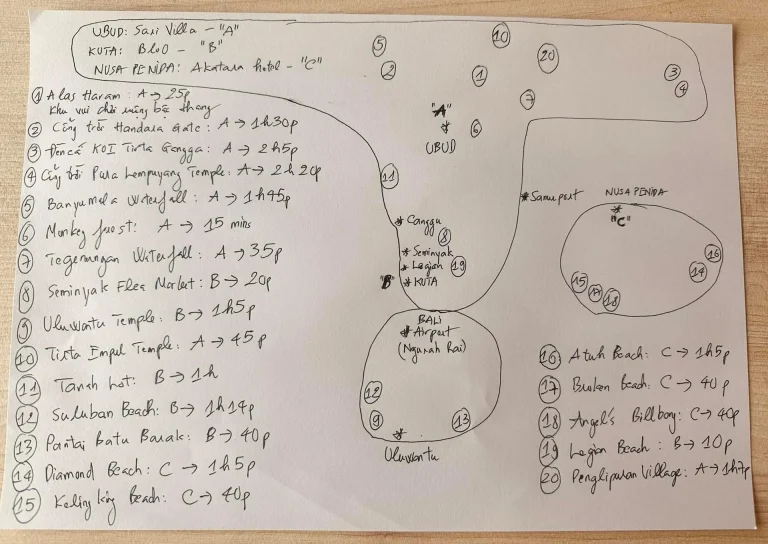 UBUD: Sari Villa - "A"
KUTA: Bloo - "B"
NUSA PENIDA: Akatara hotel - "C"
① Alas Haram: A → 25p
Khu vui chơi ruộng bậc thang
② Cổng trời Handara Gate: A → 1h30p
③ Đền cá KOI Tirta Gangga: A → 2h5p
④ Cổng trời Pura Lempuyang Temple: A → 2h20p
⑤ Banyumala Waterfall: A → 1h45p
⑥ Monkey forest: A → 15 mins
⑦ Tegenungan Waterfall: A → 35p
⑧ Seminyak Flea Market: B → 20p
⑨ Uluwatu Temple: B → 1h5p
⑩ Tirta Empul Temple: A → 45p
⑪ Tanah Lot: B → 1h
⑫ Suluban Beach: B → 1h14p
⑬ Pantai Batu Barak: B → 40p
⑭ Diamond Beach: C → 1h5p
⑮ Kelingking Beach: C → 40p
⑤
⑩
②
①
⑳
③
④
⑦
"A"
⑥
UBUD
⑪
Canggu
⑧
Seminyak
Legian
⑲
"B"
KUTA
Sanur port
NUSA PENIDA
"C"
⑯
⑭
⑮
⑰
⑱
BALI
Airport
(Ngurah Rai)
⑫
⑨
⑬
Uluwantu
⑯ Atuh Beach: C → 1h5p
⑰ Broken Beach: C → 40p
⑱ Angel's Billbong: C → 40p
⑲ Legian Beach: B → 10p
⑳ Penglipuran Village: A → 1h